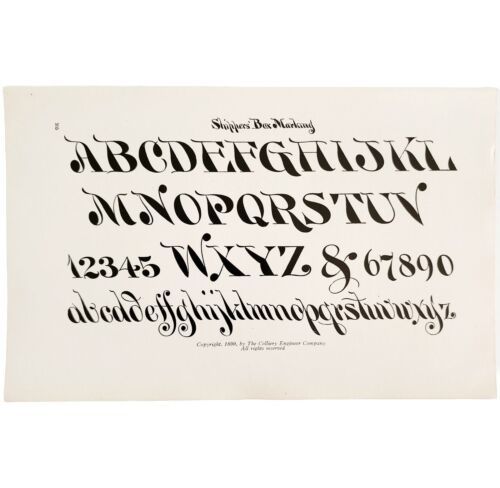 Shippers' Box Marking
ABCDEFGHIJKL
MNOPQRSTUV
12345 WXYZ & 67890
abcddeffghijklmnopqrstuvwxyz.
Copyright, 1899, by The Colliery Engineer Company
All rights reserved